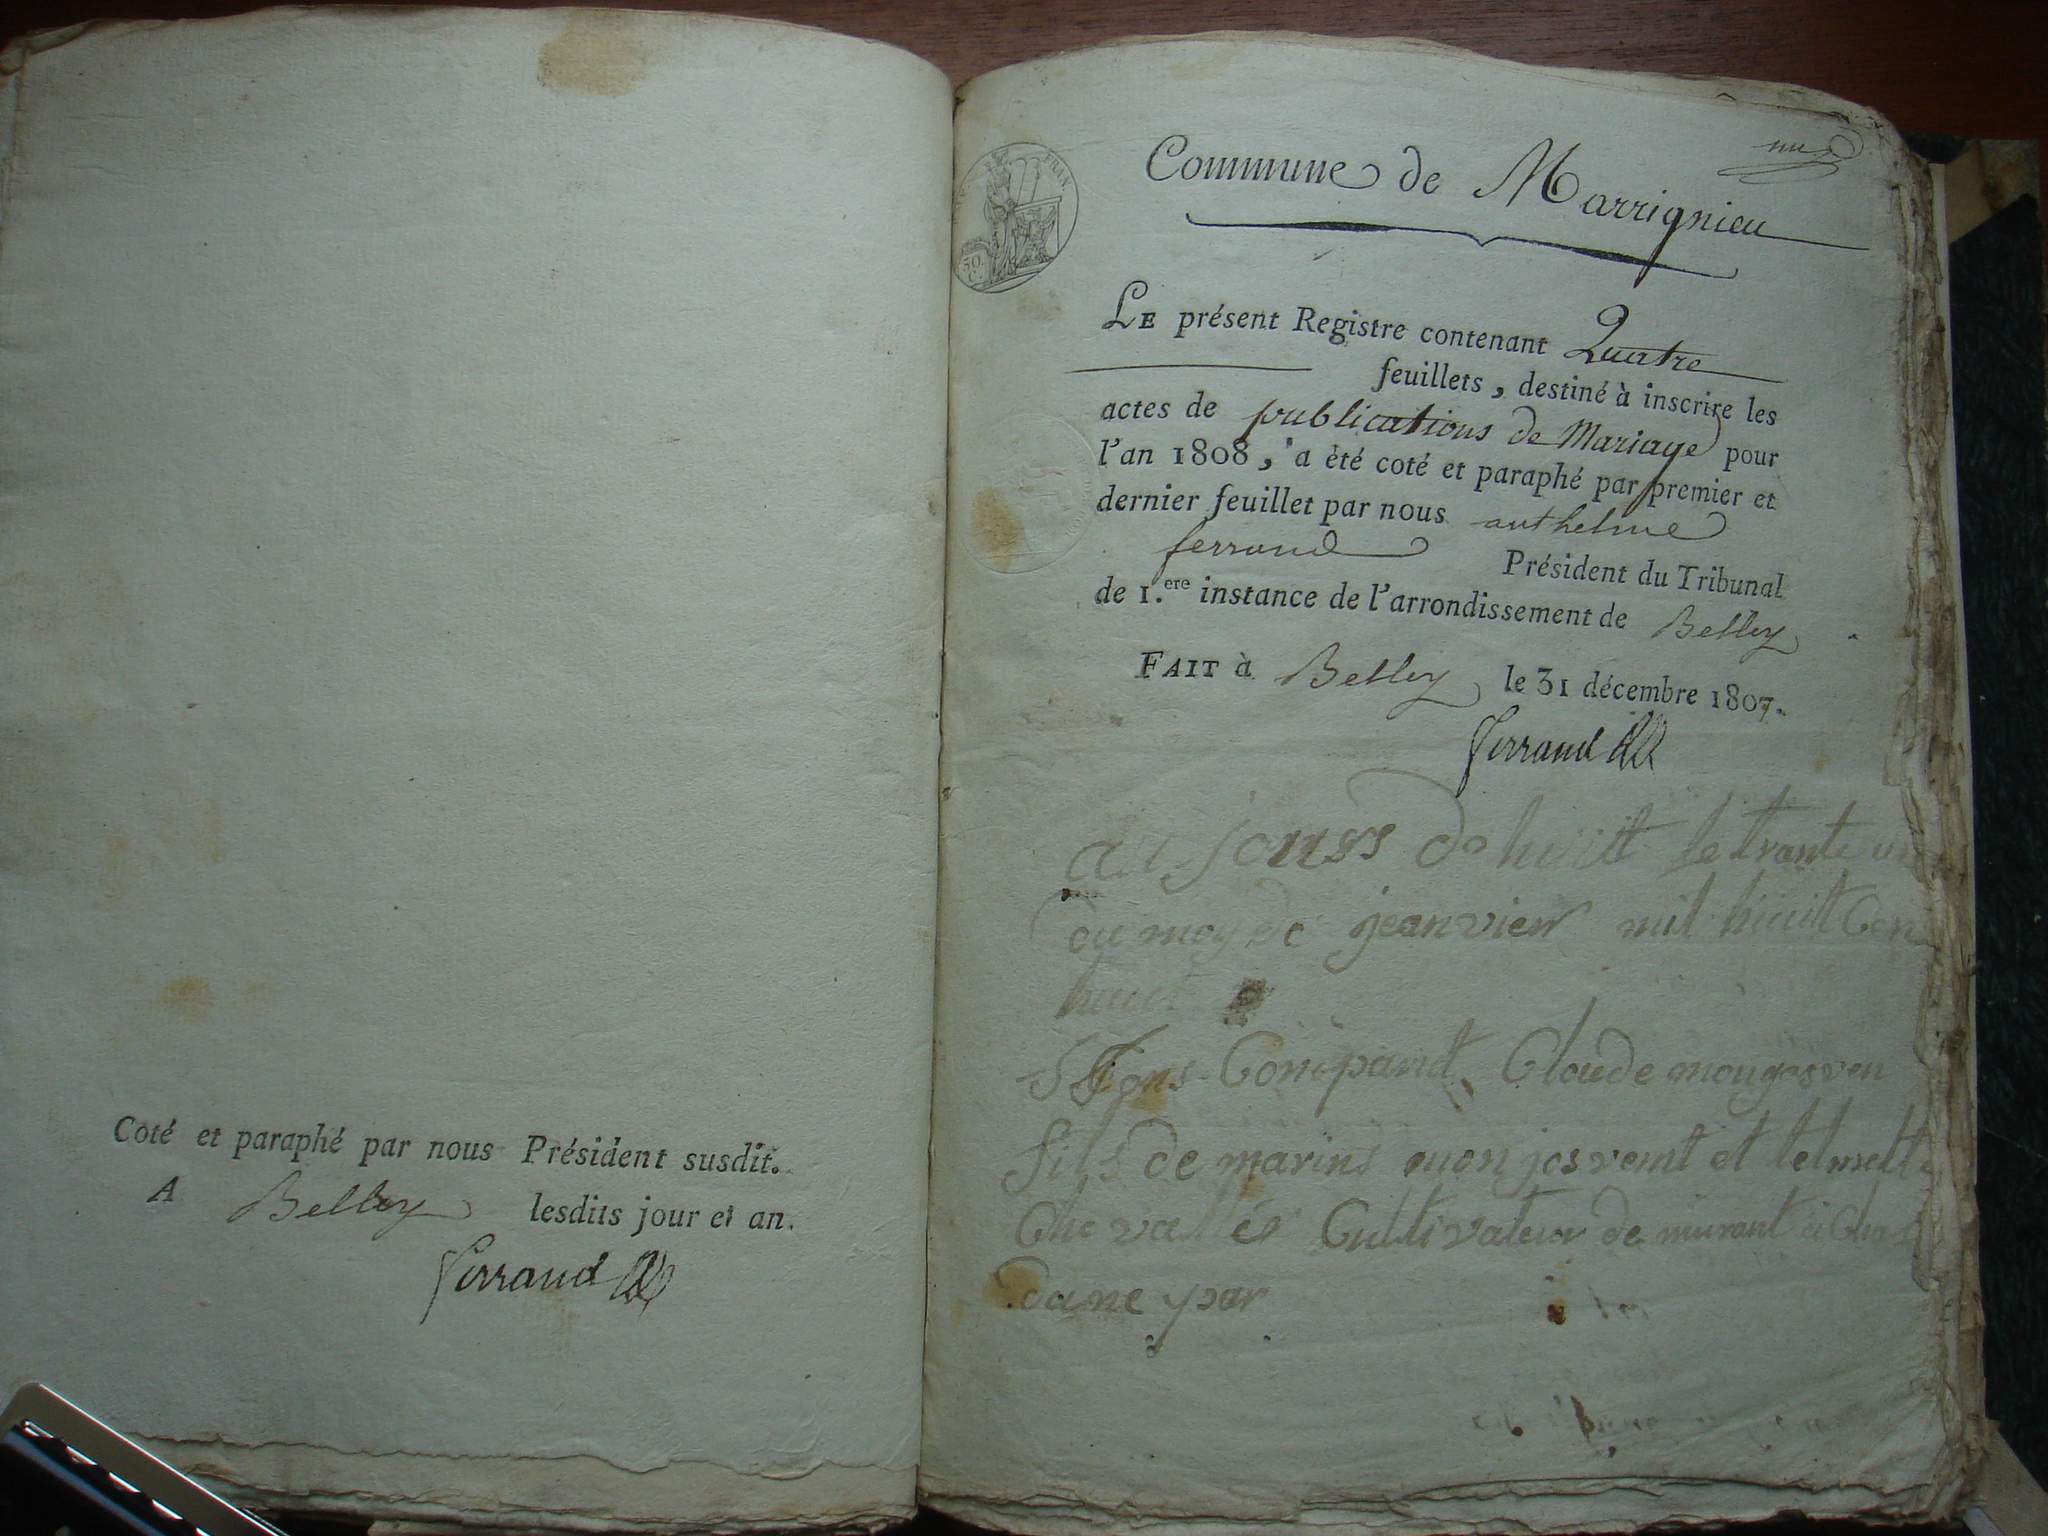 Coté et paraphé par nous Président susdit.
A Belley lesdits jour et an.
Ferrand
EMP. FRAN.
50.
C.
Commune de Marrignieu
LE présent Registre contenant Quatre
feuillets, destiné à inscrire les
actes de publications de Mariage pour
l'an 1808, a été coté et paraphé par premier et
dernier feuillet par nous anthelme
ferrand Président du Tribunal
de 1.ere instance de l'arrondissement de Belley
FAIT à Belley le 31 décembre 1807.
Ferrand
au jours de huitt le trante un
du moy de jeanvier mil huitt Cen
huit
Conpand Claude
fils de marins et
Cultivateur de murant à
par